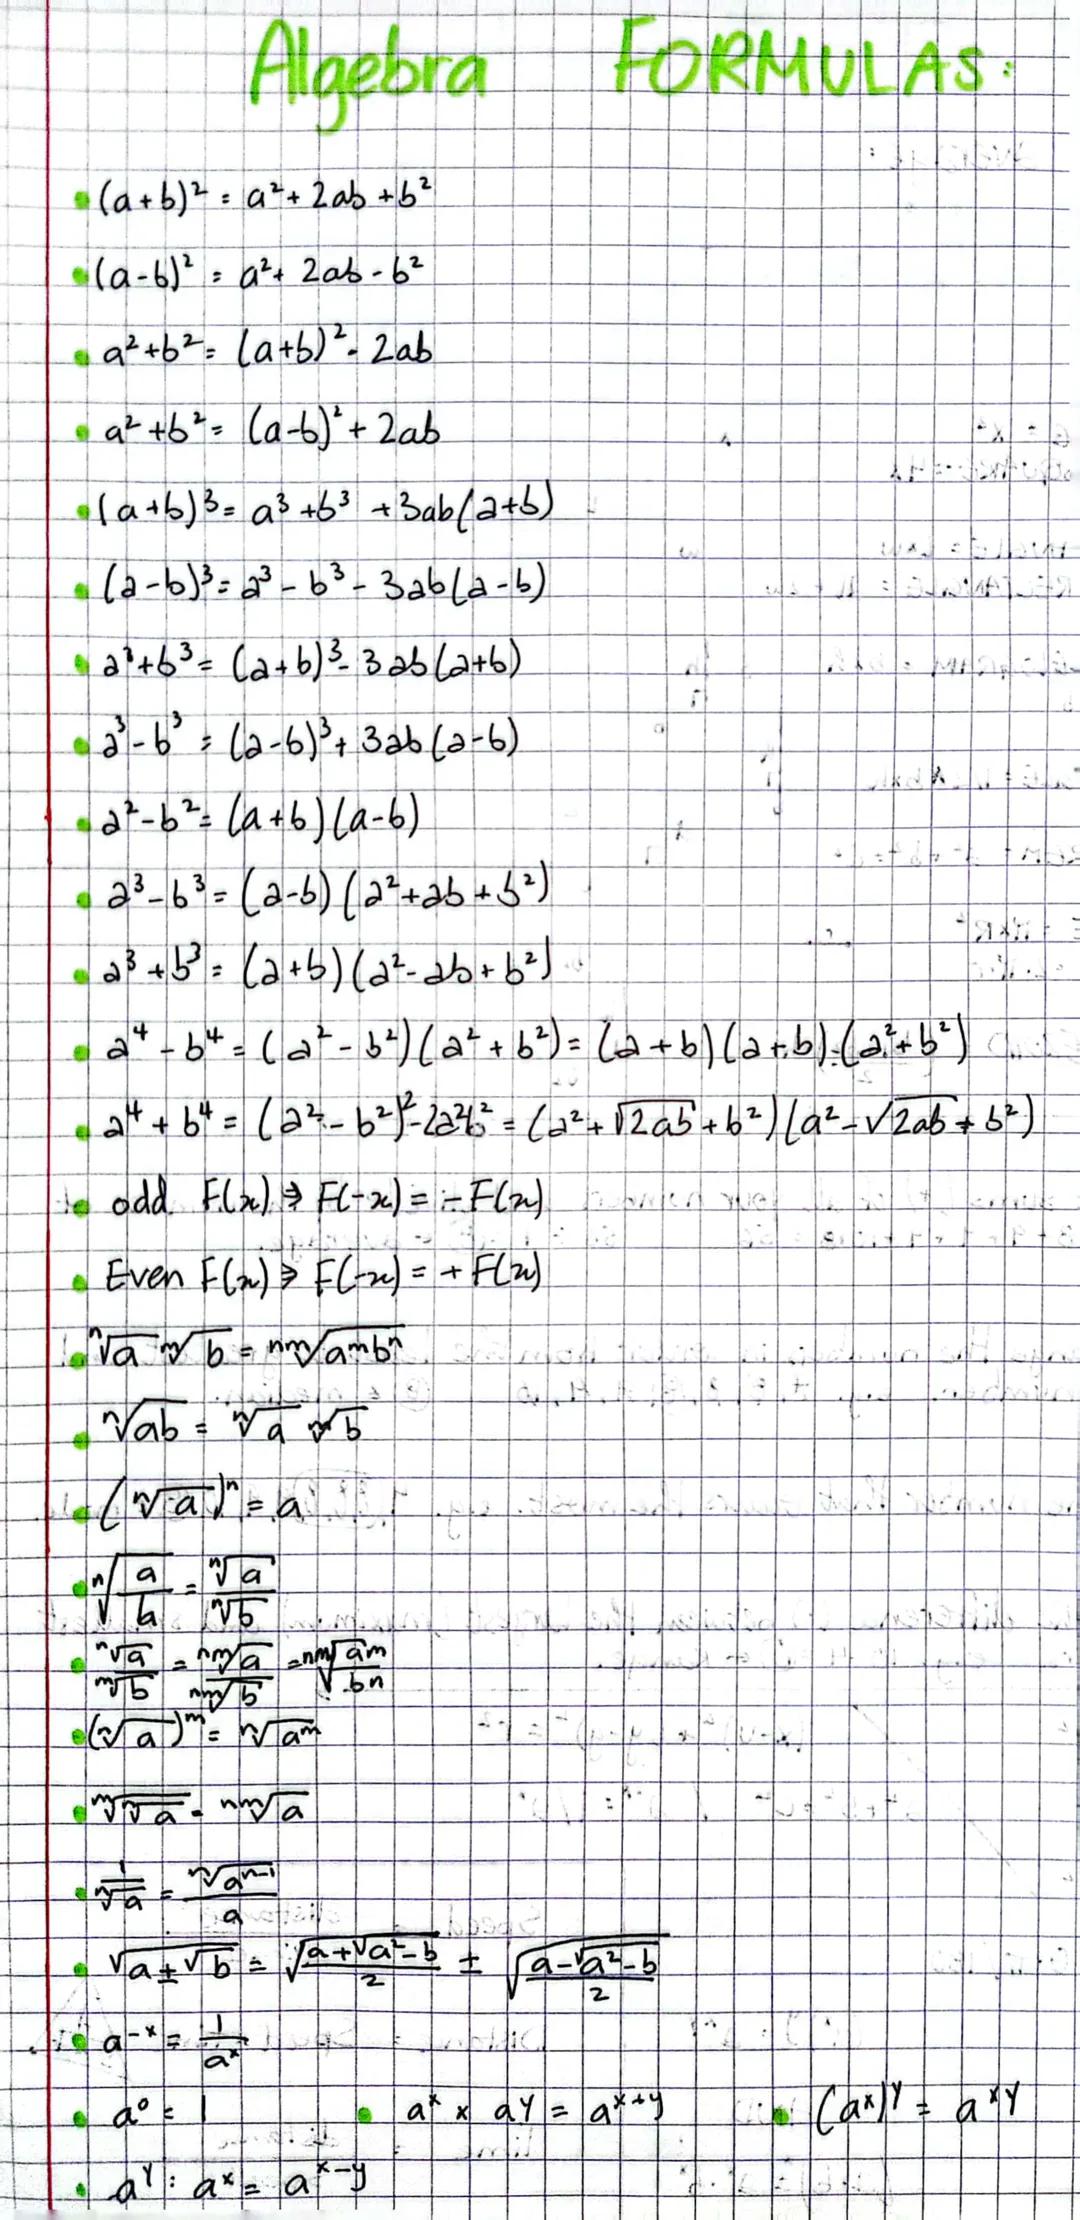 Algebra FORMULAS:
• (a+b)² = a² + 2ab + b²
• (a-b)² = a² + 2ab - b²
• a² + b² = (a+b)² - 2ab
• a² + b² = (a-b)² + 2ab
• (a+b)³ = a³ + b³ + 3ab(a+b)
• (a-b)³ = a³ - b³ - 3ab(a-b)
• a³ + b³ = (a+b)³ - 3ab(a+b)
• a³ - b³ = (a-b)³ + 3ab(a-b)
• a² - b² = (a+b)(a-b)
• a³ - b³ = (a-b)(a² + ab + b²)
• a³ + b³ = (a+b)(a² - ab + b²)
• a⁴ - b⁴ = (a² - b²)(a² + b²) = (a+b)(a+b).(a² + b²)
• a⁴ + b⁴ = (a² - b²)² - 2a²b² = (a² + √2ab + b²)(a² - √2ab + b²)
• odd F(x) ⇒ F(-x) = -F(x)
• Even F(x) ⇒ F(-x) = + F(x)
• ⁿ√a ᵐ√b = ⁿᵐ√aᵐbⁿ
• ⁿ√ab = ⁿ√a ⁿ√b
• (ⁿ√a)ⁿ = a
• ⁿ√(a/b) = ⁿ√a / ⁿ√b
• ⁿ√a / ᵐ√b = ⁿᵐ√a / ⁿᵐ√b = ⁿᵐ√(am/bn)
• (ⁿ√a)ᵐ = ⁿ√aᵐ
• ᵐ√ⁿ√a = ⁿᵐ√a
• 1/ⁿ√a = ⁿ√aⁿ⁻¹ / a
• √a±√b = √(a+√a²-b / 2) ± √(a-√a²-b / 2)
• a⁻ˣ = 1/aˣ
• a⁰ = 1 • aˣ × aʸ = aˣ⁺ʸ • (aˣ)ʸ = aˣʸ
• aʸ : aˣ = aˣ⁻ʸ